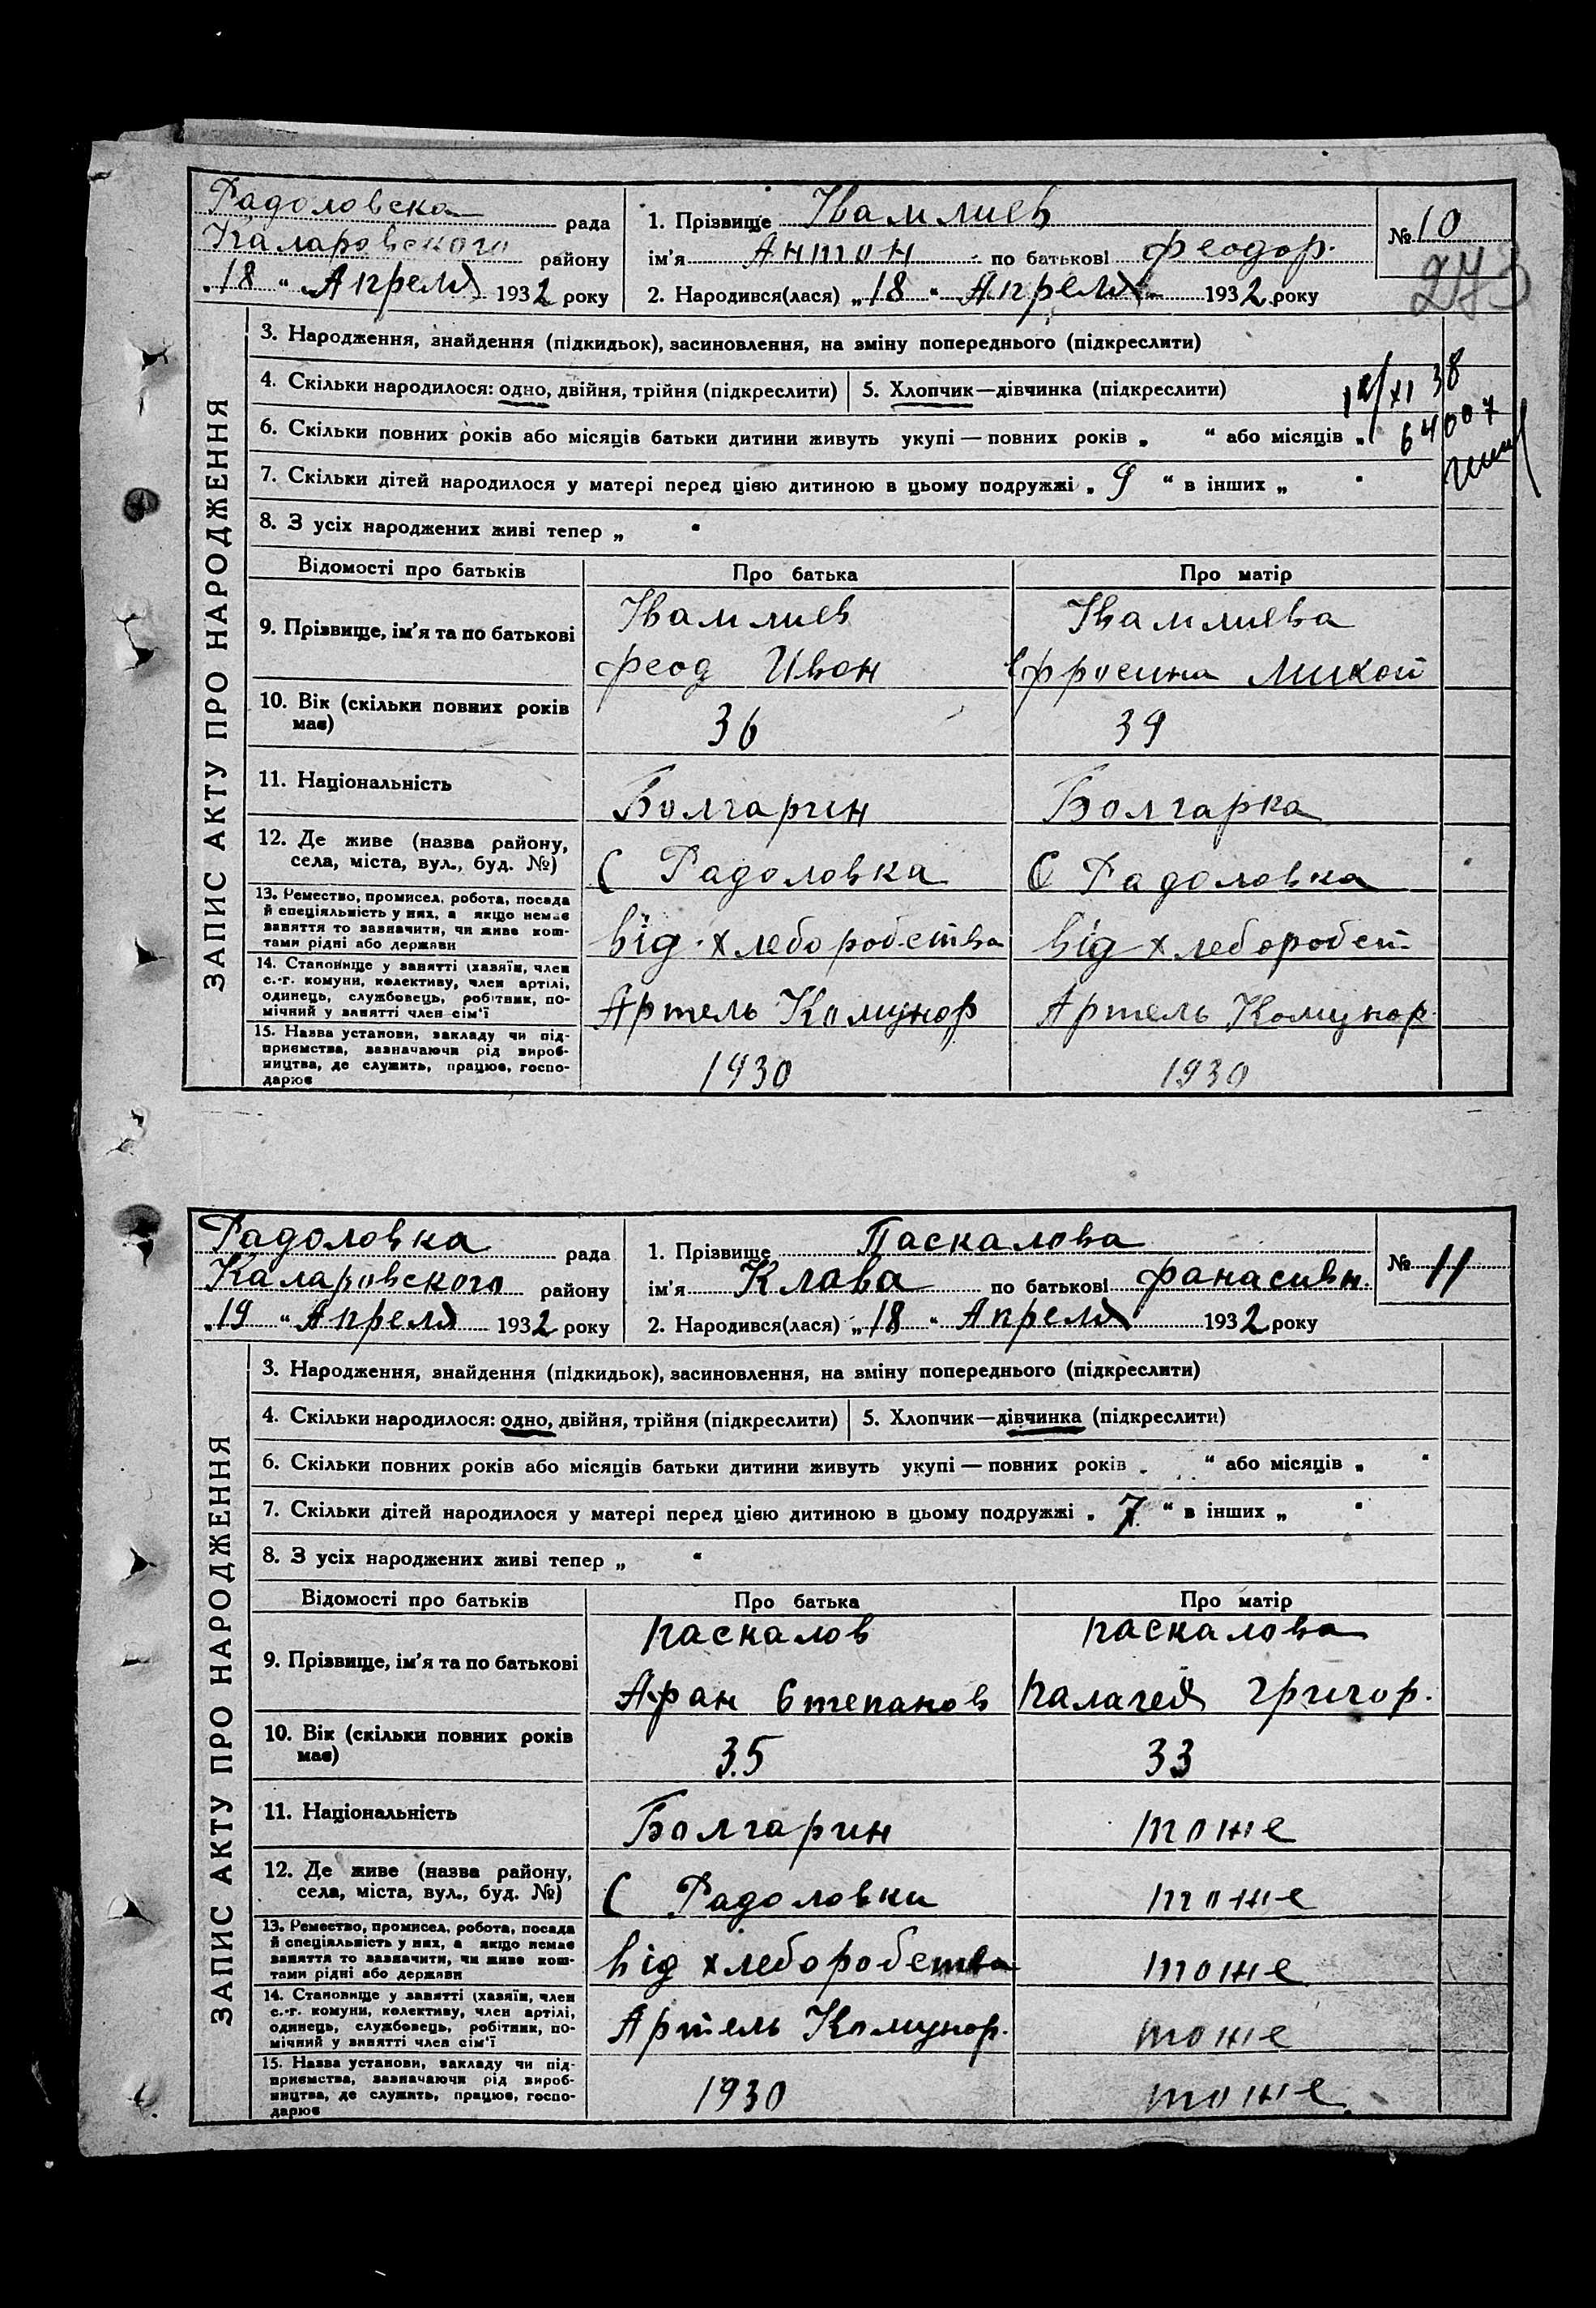 Радоловска рада
Каларовского району
„18“ Апреля 1932 року
1. Прізвище Ивамлиев
ім'я Антон по батькові феодор.
2. Народився(лася) „18“ Апреля 1932 року
№ 10
273
ЗАПИС АКТУ ПРО НАРОДЖЕННЯ
3. Народження, знайдення (підкидьок), засиновлення, на зміну попереднього (підкреслити)
4. Скільки народилося: одно, двійня, трійня (підкреслити) 5. Хлопчик—дівчинка (підкреслити)
12/XI 38
6. Скільки повних років або місяців батьки дитини живуть укупі — повних років „ “ або місяців „
64007
7. Скільки дітей народилося у матері перед цією дитиною в цьому подружжі „ 9 “ в інших „ “
8. З усіх народжених живі тепер „ “
Відомості про батьків Про батька Про матір
9. Прізвище, ім'я та по батькові
Ивамлиев Ивамлиева
феод Иван Ефросина Михой
10. Вік (скільки повних років має) 36 39
11. Національність Болгарин Болгарка
12. Де живе (назва району, села, міста, вул., буд. №) С Радоловка С Радоловка
13. Ремество, промисел, робота, посада й спеціяльність у них, а якщо немає заняття то зазначити, чи живе коштами рідні або держави
від хлеборобства від хлеборобст
14. Становище у занятті (хазяїн, член с.-г. комуни, колективу, член артілі, одинець, службовець, робітник, помічний у занятті член сім'ї
Артель Комунар Артель Комунар.
15. Назва установи, закладу чи підприємства, зазначаючи рід виробництва, де служить, працює, господарює
1930 1930
Радоловка рада
Каларовского району
„19“ Апреля 1932 року
1. Прізвище Паскалова
ім'я Клава по батькові фанасивн.
2. Народився(лася) „18“ Апреля 1932 року
№ 11
ЗАПИС АКТУ ПРО НАРОДЖЕННЯ
3. Народження, знайдення (підкидьок), засиновлення, на зміну попереднього (підкреслити)
4. Скільки народилося: одно, двійня, трійня (підкреслити) 5. Хлопчик—дівчинка (підкреслити)
6. Скільки повних років або місяців батьки дитини живуть укупі — повних років „ “ або місяців „ “
7. Скільки дітей народилося у матері перед цією дитиною в цьому подружжі „ 7 “ в інших „ “
8. З усіх народжених живі тепер „ “
Відомості про батьків Про батька Про матір
9. Прізвище, ім'я та по батькові
паскалов паскалова
Афан Степанов палагея григор.
10. Вік (скільки повних років має) 35 33
11. Національність Болгарин тоже
12. Де живе (назва району, села, міста, вул., буд. №) С Радоловки тоже
13. Ремество, промисел, робота, посада й спеціяльність у них, а якщо немає заняття то зазначити, чи живе коштами рідні або держави
від хлеборобства тоже
14. Становище у занятті (хазяїн, член с.-г. комуни, колективу, член артілі, одинець, службовець, робітник, помічний у занятті член сім'ї
Артель Комунар. тоже
15. Назва установи, закладу чи підприємства, зазначаючи рід виробництва, де служить, працює, господарює
1930 тоже.